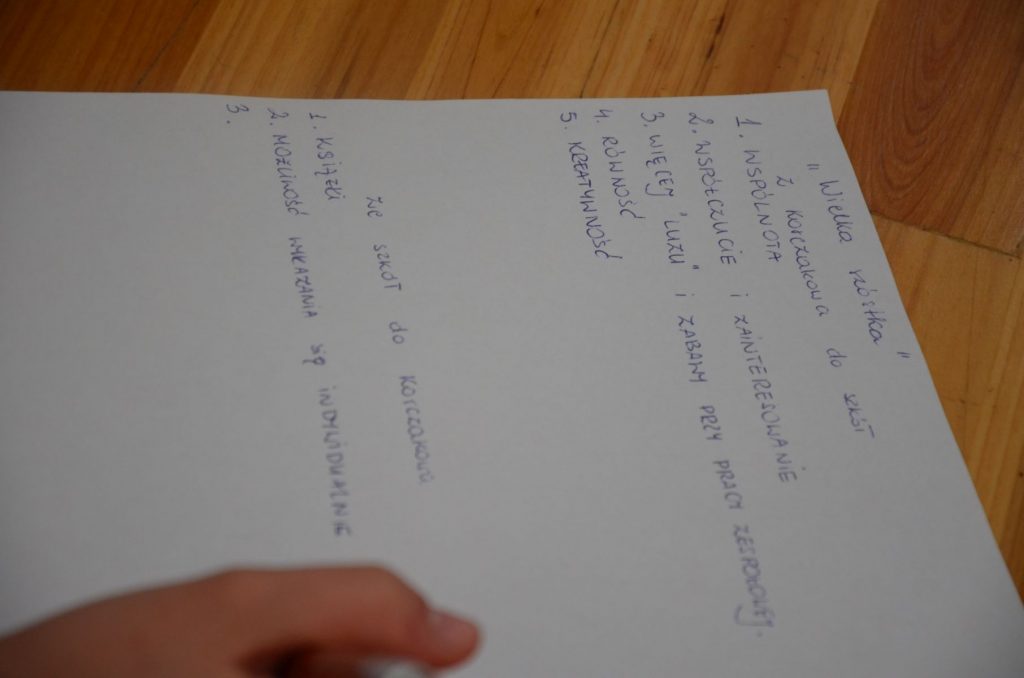 "Wielka szóstka"
z Korczakowa do szkół
1. WSPÓLNOTA
2. WSPÓŁCZUCIE i ZAINTERESOWANIE
3. WIĘCEJ "LUZU" i ZABAWY PRZY PRACY ZESPOŁOWEJ.
4. RÓWNOŚĆ
5. KREATYWNOŚĆ
ze szkół do Korczakowa
1. KSIĄŻKI
2. MOŻLIWOŚĆ WYKAZANIA się INDYWIDUALNIE
3.